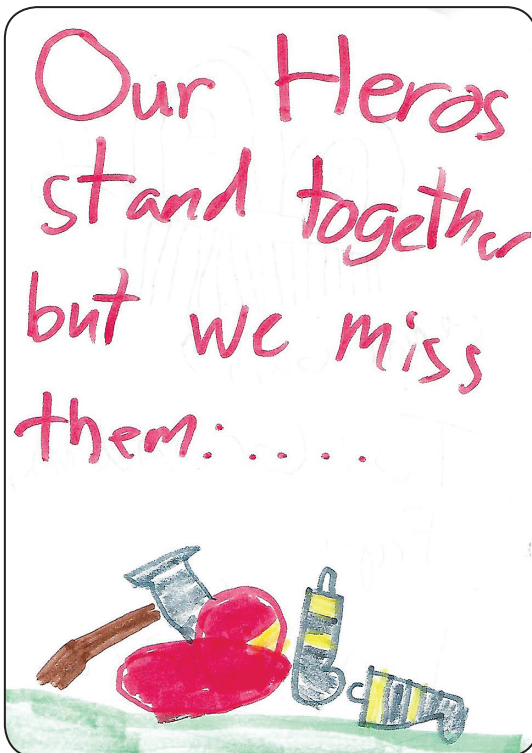 Our Heros
stand together
but we miss
them:....